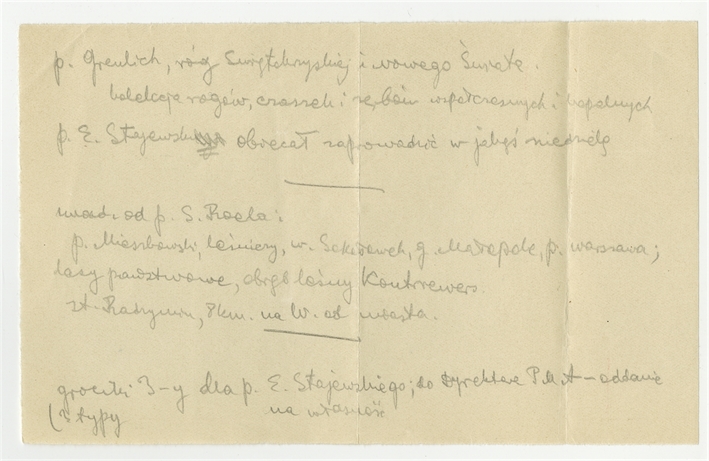 p. Greulich, róg Świętokrzyskiej i Nowego Światu.
kolekcja rogów, czaszek i zębów współczesnych i kopalnych
p. E. Stajewski obiecał zaprowadzić w jakąś niedzielę
wiad. od p. S. Roela:
p. Mieszkowski, leśniczy, w. Sokołówek, g. Małopole, p. Warszawa;
lasy państwowe, obręb leśny Kontrewers.
st. Radzymin, 8 km. na W. od miasta.
grociki 3-y dla p. E. Stajewskiego; do Dyrektora P.M.A – oddanie
(3 typy na własność